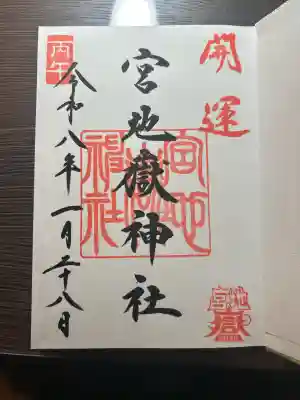 開運
宮地嶽神社
宮地嶽神社
宮地嶽
丙午
令和八年一月二十八日